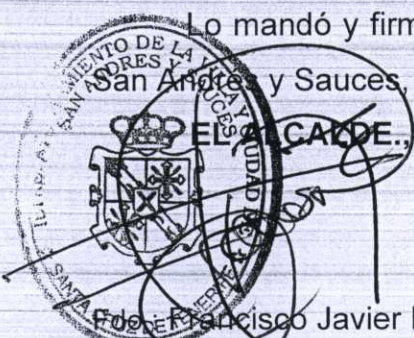 Lo mandó y firm
San Andrés y Sauces,
EL ALCALDE.,
Fdo.: Francisco Javier
AYUNTAMIENTO DE LA VILLA Y CIUDAD DE
SAN ANDRES Y SAUCES
SANTA CRUZ DE TENERIFE